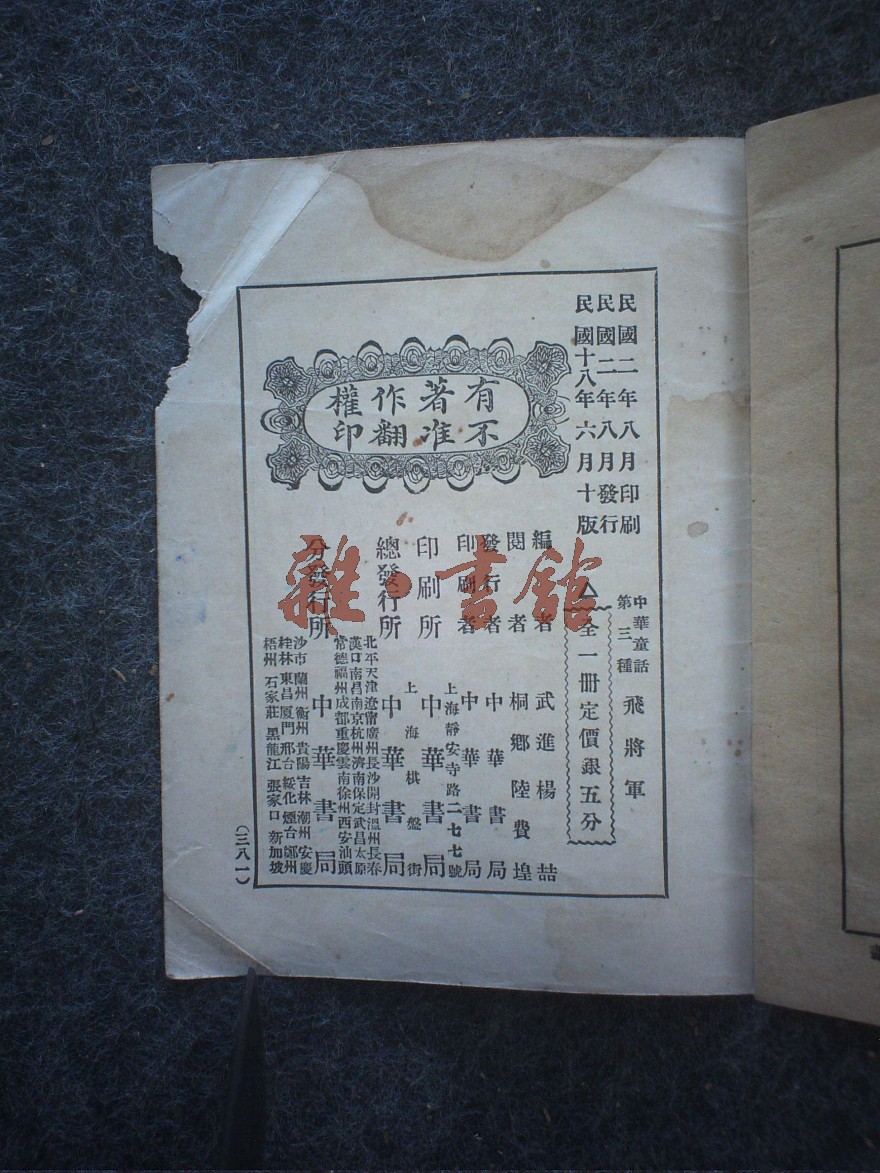 民國二年八月印刷
民國二年八月發行
民國十八年六月十版
有著作權
不准翻印
中華童話
第三種
飛將軍
全一冊定價銀五分
編者 武進楊喆
閱者 桐鄉陸費堭
發行者 中華書局
印刷者 中華書局
印刷所 上海靜安寺路二七七號 中華書局
總發行所 上海棋盤街 中華書局
分發行所 中華書局
北平天津遼甯廣州長沙開封溫州長春
漢口南昌南京杭州濟南保定武昌太原
常德福州成都重慶雲南徐州西安汕頭
沙市蘭州衡州貴陽吉林潮州安慶
桂林東昌厦門邢台綏化煙台鄭州
梧州石家莊黑龍江張家口新加坡
(三八一)
雜·書館